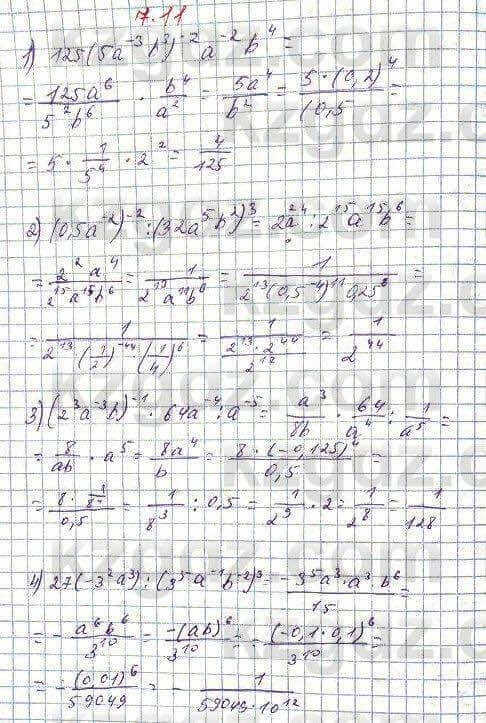 7.11
1) 125(5a⁻³b³)⁻²a⁻²b⁴=
= 125a⁶/5²b⁶ · b⁴/a² = 5a⁴/b² = 5·(0,2)⁴/(0,5 =
= 5 · 1/5⁴ · 2² = 4/125
2) (0,5a⁻²)⁻² : (32a⁵b²)³ = 2²a⁴ : 2¹⁵a¹⁵b⁶ =
= 2²a⁴/2¹⁵a¹⁵b⁶ = 1/2¹³a¹¹b⁶ = 1/2¹³(0,5⁻⁴)¹¹0,25⁶ =
= 1/2¹³·(1/2)⁻⁴⁴·(1/4)⁶ = 1/(2¹³·2⁴⁴/2¹²) = 1/2⁴⁴
3) (2³a⁻³b)⁻¹ · 64a⁻⁴ : a⁻⁵ = a³/8b · 64/a⁴ : 1/a⁵ =
= 8/ab · a⁵ = 8a⁴/b = 8·(-0,125)⁴/0,5 =
= 8·1/8⁴/0,5 = 1/8³ : 0,5 = 1/2⁹ · 2 = 1/2⁸ = 1/128
4) 27(-3²a³) : (3⁵a⁻¹b⁻²)³ = -3⁵a³·a³·b⁶/15 =
= - a⁶b⁶/3¹⁰ = -(ab)⁶/3¹⁰ = - (-0,1·0,1)⁶/3¹⁰ =
= - (0,01)⁶/59049 = - 1/59049·10¹²
kzgdz.com